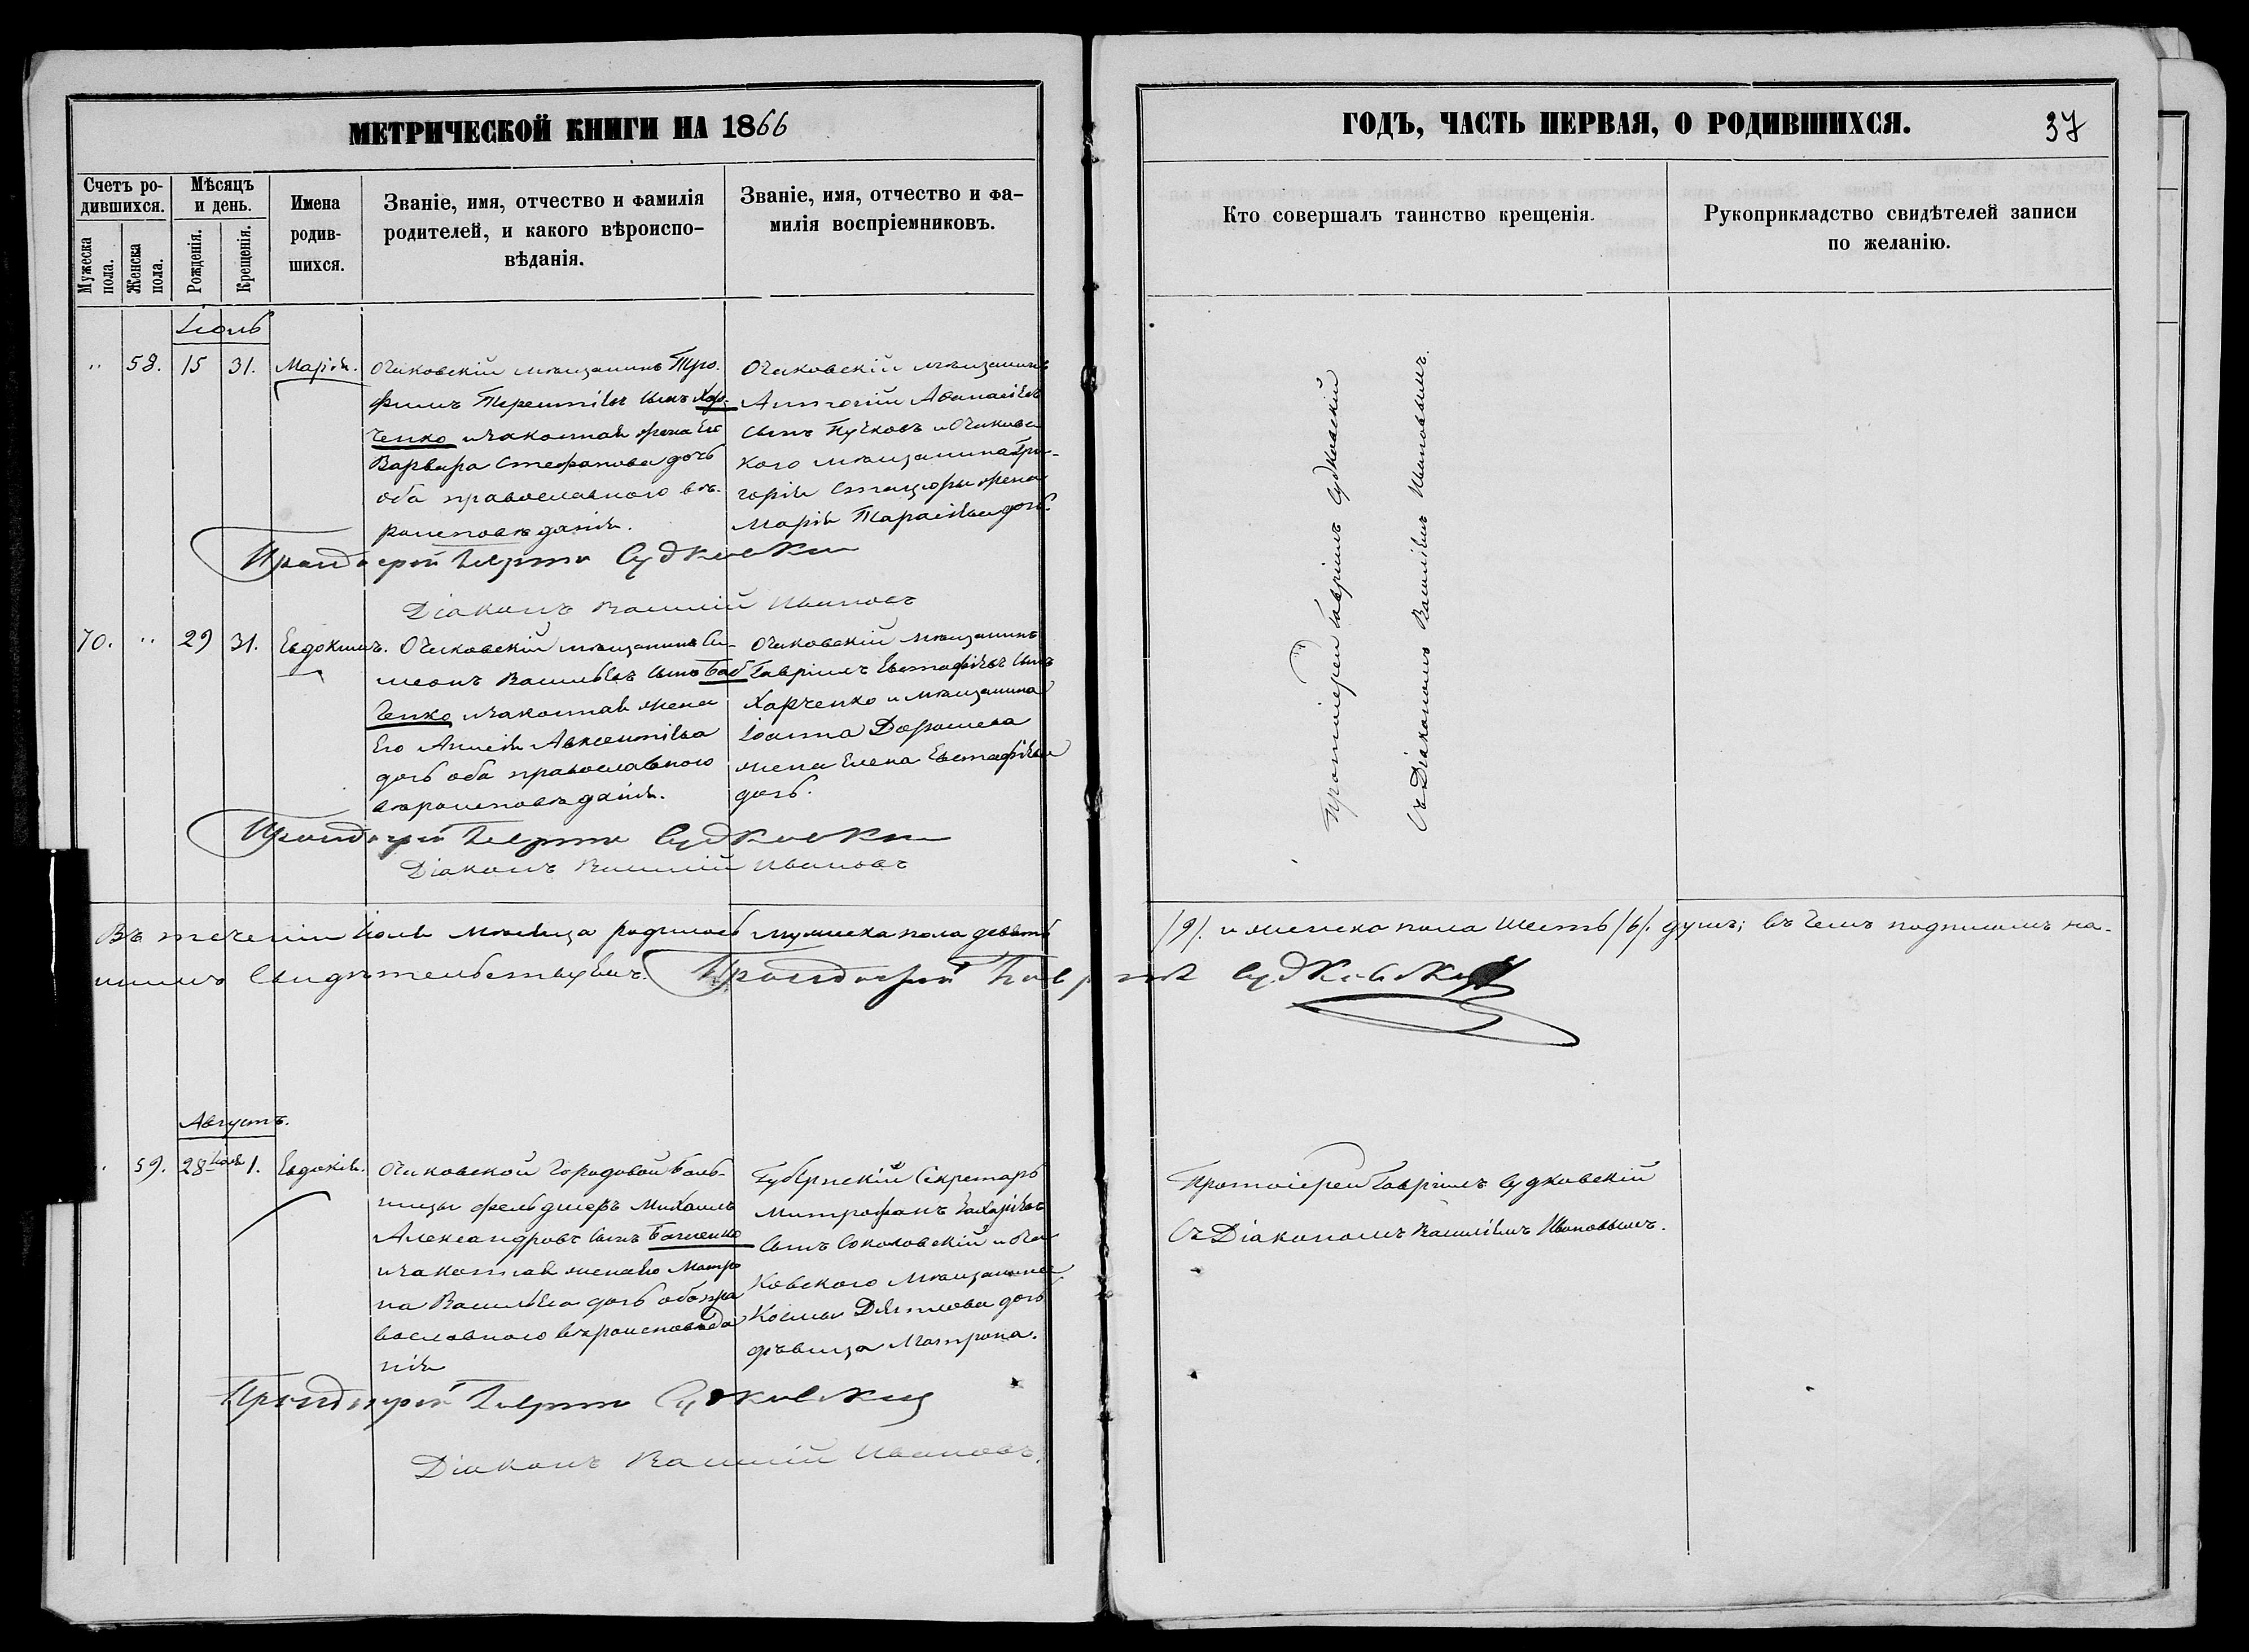 МЕТРИЧЕСКОЙ КНИГИ НА 1866
ГОДЪ, ЧАСТЬ ПЕРВАЯ, О РОДИВШИХСЯ.
37
Счетъ ро-
дившихся.
Мужеска
пола.
Женска
пола.
Мѣсяцъ
и день.
Рожденія.
Крещенія.
Имена
родив-
шихся.
Званіе, имя, отчество и фамилія
родителей, и какого вѣроиспо-
вѣданія.
Званіе, имя, отчество и фа-
милія воспріемниковъ.
Кто совершалъ таинство крещенія.
Рукоприкладство свидѣтелей записи
по желанію.
Іюль
" 58. 15 31. Марія.
Очаковскій мѣщанинъ Тро-
фимъ Терентіевъ сынъ Хар-
ченко и законная жена Его
Варвара Стефанова дочь
оба православного вѣ-
роисповѣданія.
Очаковскій мѣщанинъ
Антоній Афанасіевъ
сынъ Пучковъ и Очаковс
кого мѣщанина Гри-
горія жена
Марія Тарасіева дочь
Протоіерей Гавріилъ Судковскій
Діаконъ Василій Ивановъ
70. " 29 31. Евдокимъ.
Очаковскій мѣщанинъ Си-
меонъ Васильевъ сынъ Баб
ченко и законная жена
Его Анисія Авксентіева
дочь оба православного
вѣроисповѣданія.
Очаковскій мѣщанинъ
Гавріилъ Евстафіевъ сынъ
Харченко и мѣщанина
Іоанна Дорошева
жена Елена Евстафіева
дочь.
Протоіерей Гавріилъ Судковскій
Діаконъ Василій Ивановъ
Протоіерей Гавріилъ Судковскій
Съ Діакономъ Василіемъ Ивановымъ.
Въ теченіи Іюля мѣсяца родилось мужеска пола девять
/9/. и женска пола шесть /6/. душъ; въ чемъ подписомъ на-
шимъ свидѣтельствуемъ. Протоіерей Гавріилъ Судковскій
Августъ.
59. 28 Іюля 1. Евдокія.
Очаковской Городовой Боль-
ницы фельдшеръ Михаилъ
Александровъ сынъ Баженко
и законная жена Его Матро
на Васильева дочь оба пра
вославного вѣроисповѣда
нія
Губернскій Секретарь
Митрофанъ Захаріевъ
сынъ Соколовскій и Оча
ковского мѣщанина
Космы Дятлова дочь
дѣвица Матрона.
Протоіерей Гавріилъ Судковскій
Съ Діакономъ Василіемъ Ивановымъ.
Протоіерей Гавріилъ Судковскій
Діаконъ Василій Ивановъ.